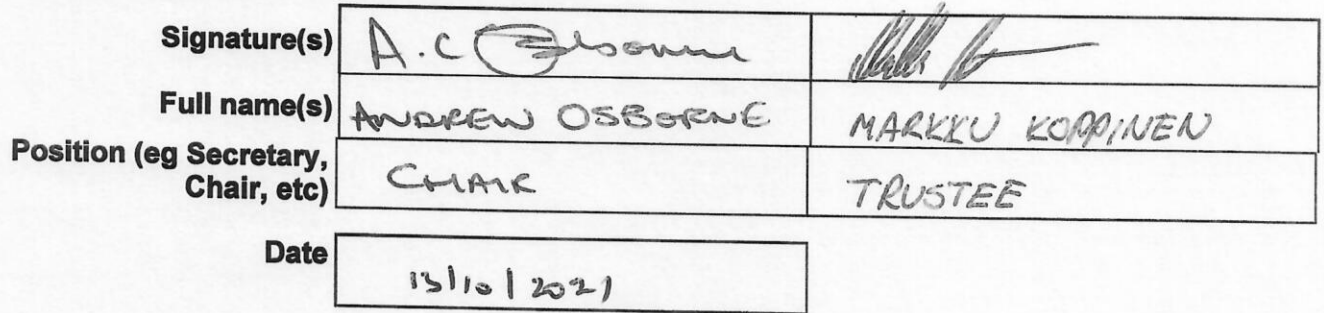 Signature(s) A.C Osborne
Full name(s) ANDREW OSBORNE MARKKU KOPPINEN
Position (eg Secretary,
Chair, etc) CHAIR TRUSTEE
Date 13/10/2021